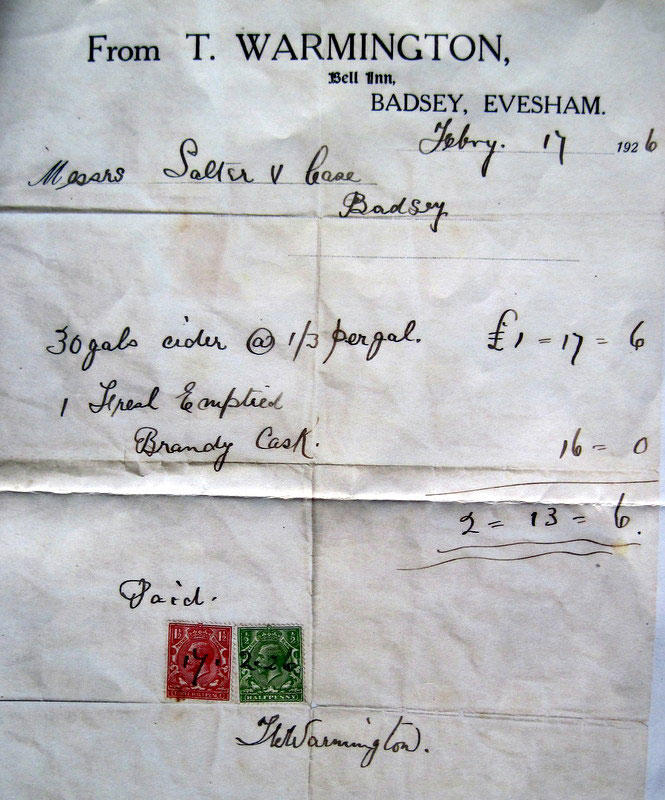 From T. WARMINGTON,
Bell Inn,
BADSEY, EVESHAM.
Febry. 17 1926
Messrs Salter & Case
Badsey
30 gals cider @ 1/3 per gal. £1 = 17 = 6
1 Fresh Emptied
Brandy Cask. 16 = 0
2 = 13 = 6.
Paid.
1½ 1½ ½ ½
17. 2.26
HALFPENNY
Warmington.